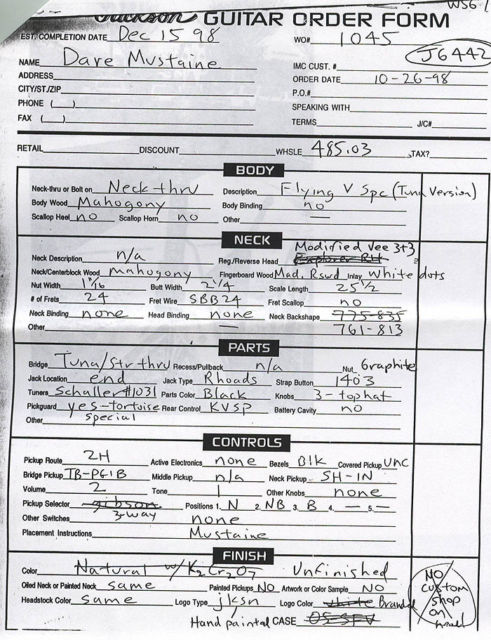 Jackson GUITAR ORDER FORM W56
EST. COMPLETION DATE Dec 15 98 WO# 1045 J6442
NAME Dave Mustaine IMC CUST. #
ADDRESS ORDER DATE 10-26-98
CITY/ST./ZIP P.O.#
PHONE ( ) SPEAKING WITH
FAX ( ) TERMS J/C#
RETAIL DISCOUNT WHSLE 485.03 TAX?
BODY
Neck-thru or Bolt on Neck-thru Description Flying V Spc (Tuna Version)
Body Wood Mahogony Body Binding no
Scallop Heel no Scallop Horn no Other —
NECK
Neck Description n/a Reg./Reverse Head Modified Vee 3+3 Explorer RH
Neck/Centerblock Wood mahogony Fingerboard Wood Mad. Rswd Inlay White dots
Nut Width 1 11/16 Butt Width 2 1/4 Scale Length 25 1/2
# of Frets 24 Fret Wire SBB24 Fret Scallop no
Neck Binding none Head Binding none Neck Backshape 775-835
Other — 761-813
PARTS
Bridge Tuna/Str thru Recess/Pullback n/a Nut Graphite
Jack Location end Jack Type Rhoads Strap Button 1403
Tuners Schaller #1031 Parts Color Black Knobs 3-tophat
Pickguard yes-tortoise Rear Control KVSP Battery Cavity no
Other special
CONTROLS
Pickup Route 2H Active Electronics none Bezels Blk Covered Pickup UNC
Bridge Pickup TB-PG1B Middle Pickup n/a Neck Pickup SH-1N
Volume 2 Tone 1 Other Knobs none
Pickup Selector gibson Positions 1. N 2. NB 3. B 4. — 5. —
Other Switches 3-way none
Placement Instructions Mustaine
FINISH
Color Natural w/ K2Cr2O7 Unfinished
Oiled Neck or Painted Neck same Painted Pickups NO Artwork or Color Sample NO
Headstock Color same Logo Type jksn Logo Color white Branded
Hand painted CASE
NO custom shop on head